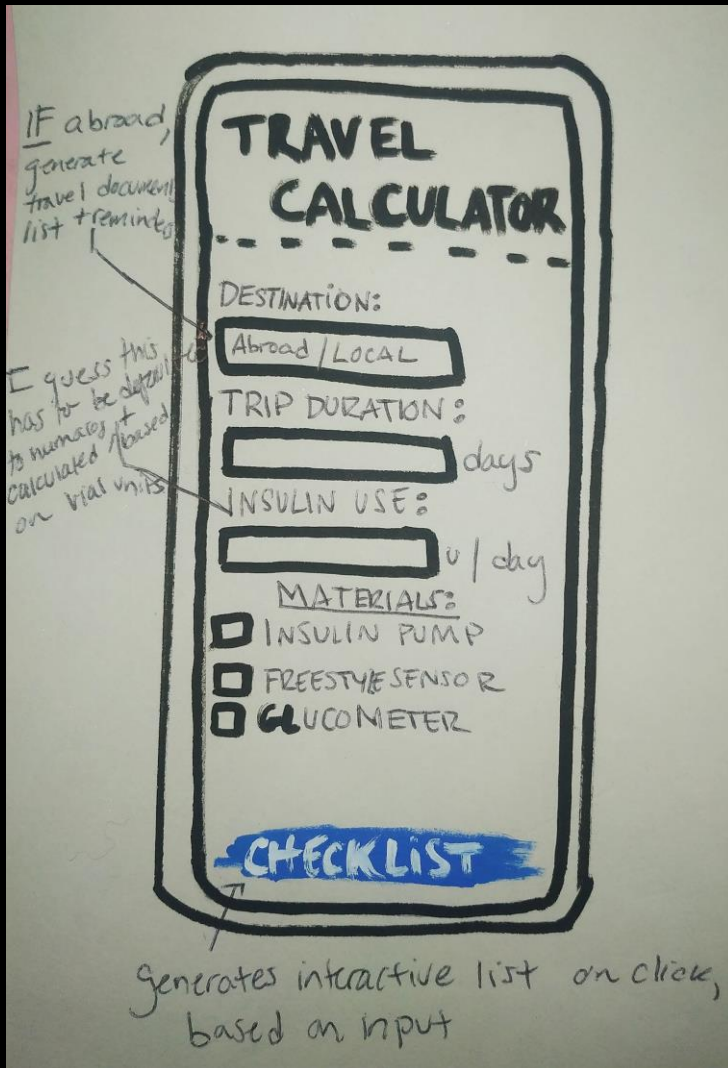 IF abroad,
generate
travel document
list + reminder
I guess this
has to be
to numeric +
calculated based
on vial units
TRAVEL
CALCULATOR
DESTINATION:
Abroad / LOCAL
TRIP DURATION:
days
INSULIN USE:
u / day
MATERIALS:
INSULIN PUMP
FREESTYLE SENSOR
GLUCOMETER
CHECKLiST
generates interactive list on click,
based on input